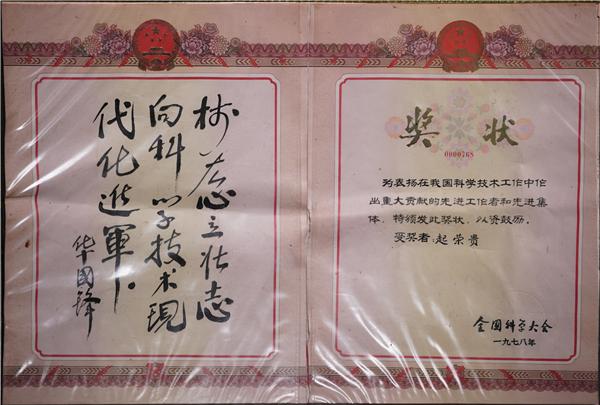 树雄心立壮志
向科学技术现
代化進軍。
华國锋
奖状
0000768
为表扬在我国科学技术工作中作
出重大贡献的先进工作者和先进集
体，特颁发此奖状，以资鼓励。
受奖者：起荣贵
全国科学大会
一九七八年